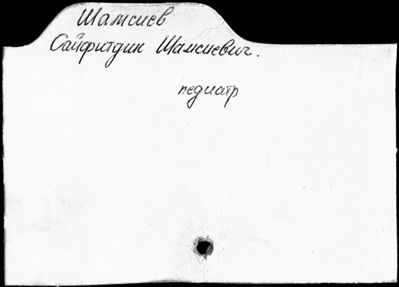 Шамсиев
Сайфитдин Шамсиевич.
педиатр